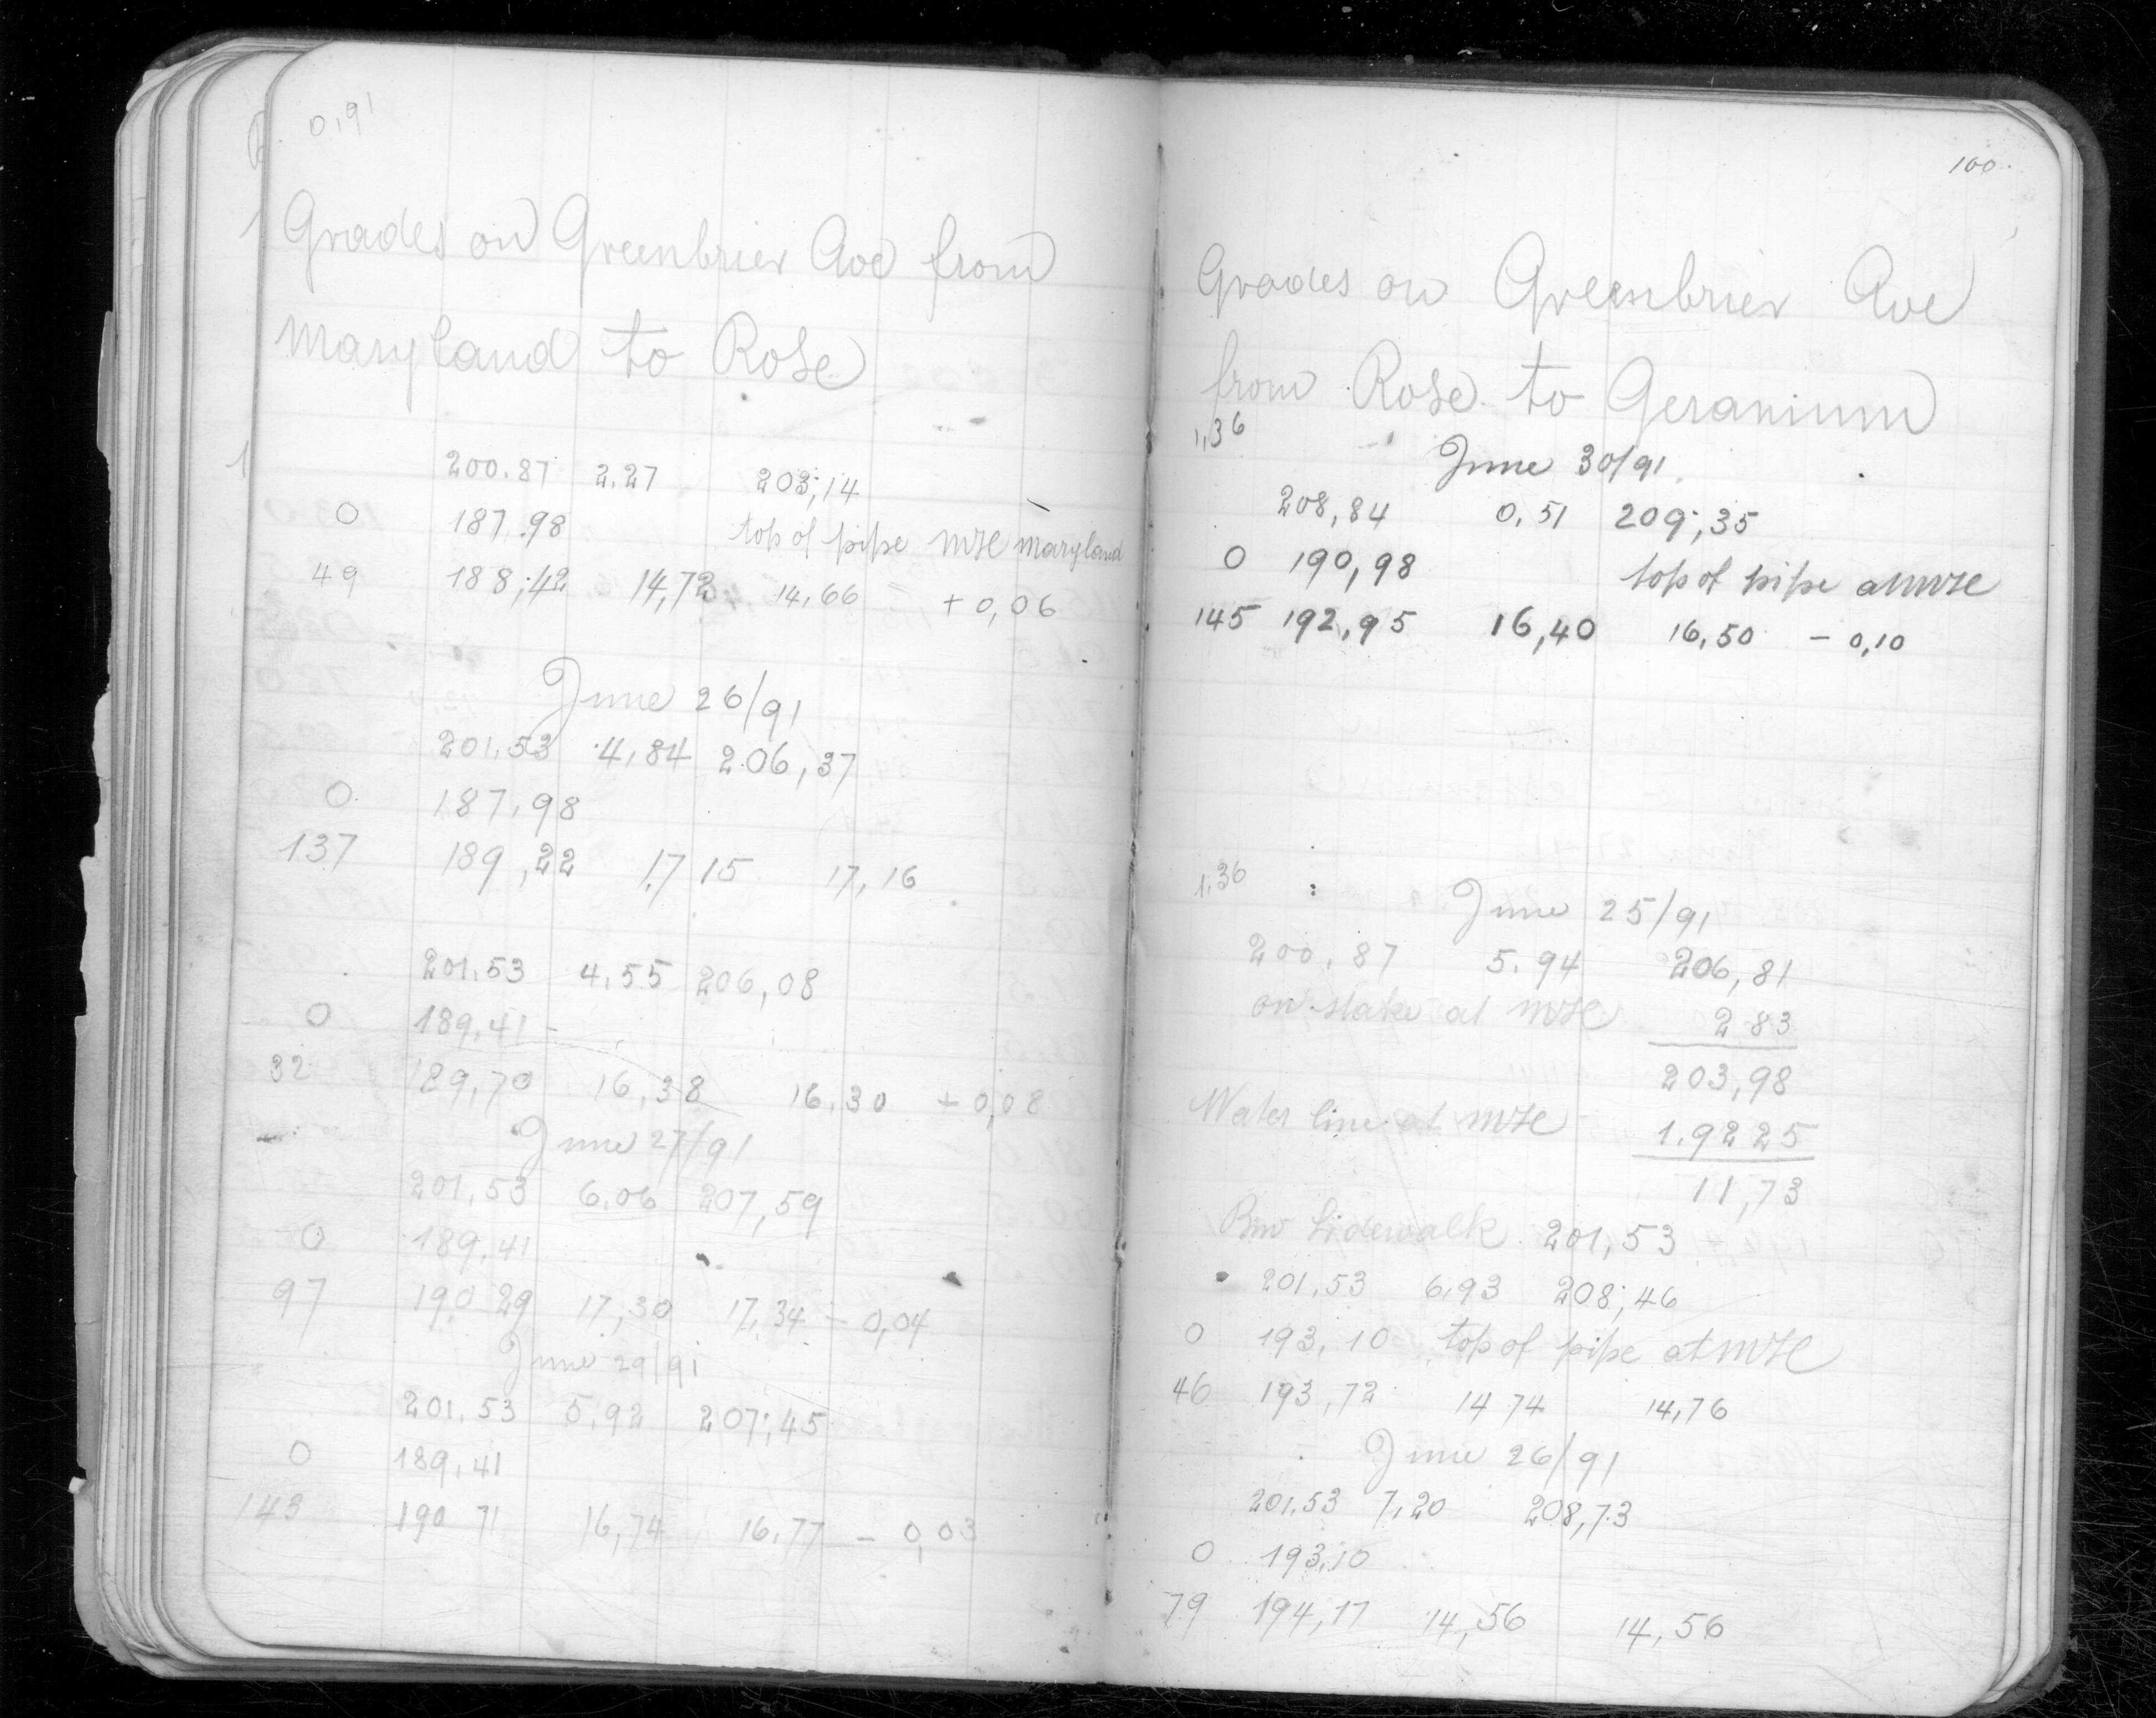 0,91
Grades on Greenbrier Ave from
Maryland to Rose
200.87 2.27 203,14
0 187.98 top of pipe MH Maryland
49 188,42 14,72 14,66 + 0,06
June 26/91
201,53 4,84 206,37
0 187,98
137 189,22 17 15 17,16
201,53 4,55 206,08
0 189,41
32 189,70 16,38 16,30 + 0,08
June 27/91
201,53 6,06 207,59
0 189,41
97 190 29 17,30 17,34 - 0,04
June 29/91
201,53 5,92 207,45
0 189,41
143 190 71 16,74 16,77 - 0,03
100.
Grades on Greenbrier Ave
from Rose to Geranium
1,36
June 30/91
208,84 0,51 209,35
0 190,98 top of pipe at MH
145 192,95 16,40 16,50 - 0,10
1,36 June 25/91
200,87 5.94 206,81
on stake at MH 2 83
203,98
Water line at MH 1.92 25
11,73
Bm Sidewalk 201,53
201,53 6,93 208,46
0 193,10 top of pipe at MH
46 193,72 14 74 14,76
June 26/91
201.53 7,20 208,73
0 193,10
79 194,17 14,56 14,56